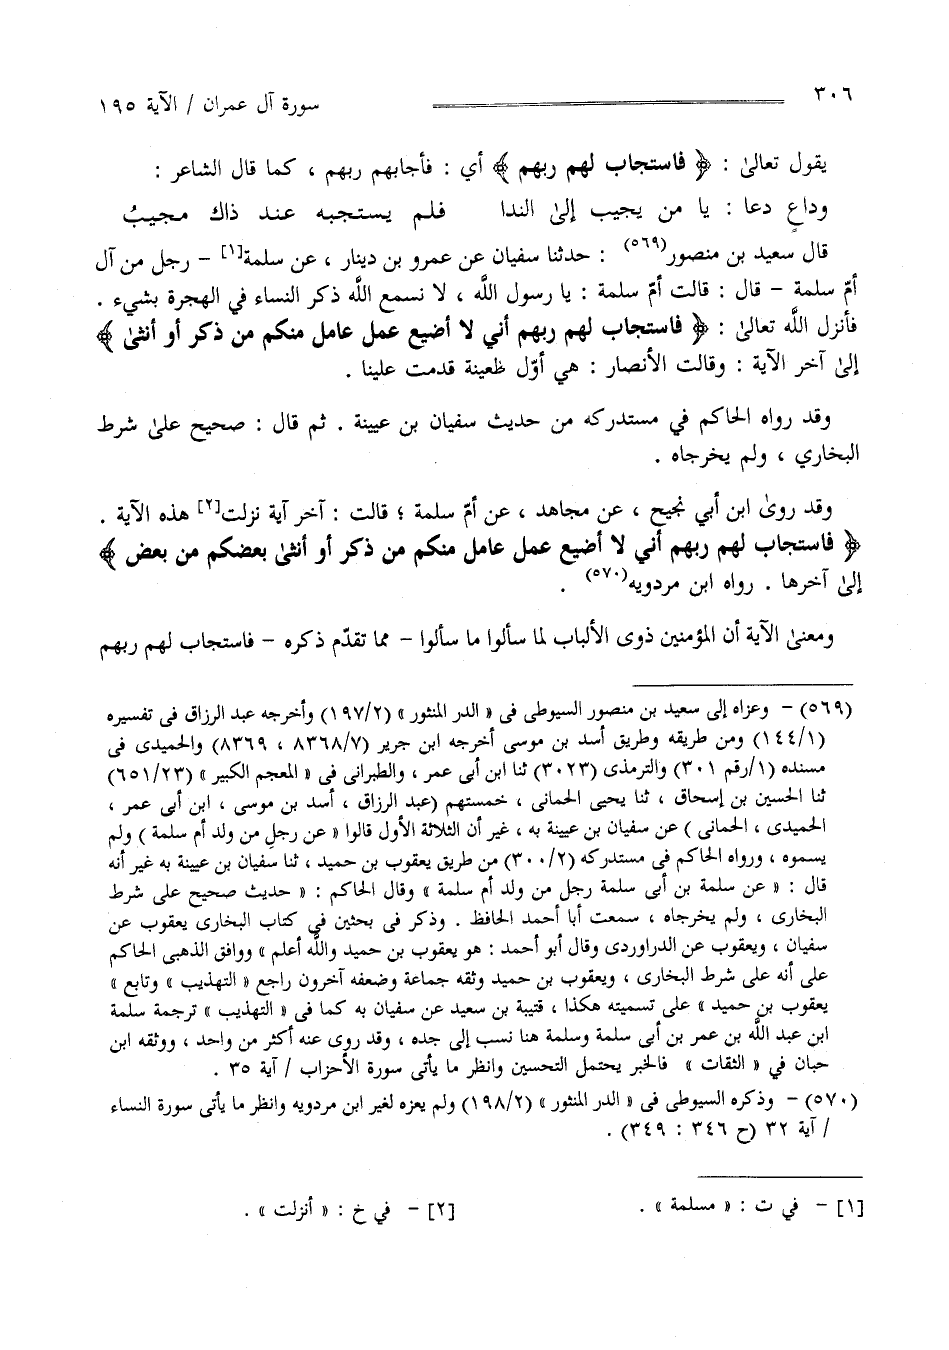 ٣٠٦
سورة آل عمران / الآية ١٩٥
يقول تعالىٰ : ﴿ فاستجاب لهم ربهم ﴾ أي : فأجابهم ربهم ، كما قال الشاعر :
وداعٍ دعا : يا من يجيب إلىٰ الندا فلم يستجبه عند ذاك مجيبُ
قال سعيد بن منصور(٥٦٩) : حدثنا سفيان عن عمرو بن دينار ، عن سلمة[١] – رجل من آل
أمّ سلمة – قال : قالت أمّ سلمة : يا رسول اللَّه ، لا نسمع اللَّه ذكر النساء في الهجرة بشيء .
فأنزل اللَّه تعالىٰ : ﴿ فاستجاب لهم ربهم أني لا أضيع عمل عامل منكم من ذكر أو أنثىٰ ﴾
إلىٰ آخر الآية : وقالت الأنصار : هي أوّل ظعينة قدمت علينا .
وقد رواه الحاكم في مستدركه من حديث سفيان بن عيينة . ثم قال : صحيح علىٰ شرط
البخاري ، ولم يخرجاه .
وقد روىٰ ابن أبي نجيح ، عن مجاهد ، عن أمّ سلمة ؛ قالت : آخر آية نزلت[٢] هذه الآية .
﴿ فاستجاب لهم ربهم أني لا أضيع عمل عامل منكم من ذكر أو أنثىٰ بعضكم من بعض ﴾
إلىٰ آخرها . رواه ابن مردويه(٥٧٠) .
ومعنىٰ الآية أن المؤمنين ذوى الألباب لما سألوا ما سألوا – مما تقدّم ذكره – فاستجاب لهم ربهم
(٥٦٩) – وعزاه إلى سعيد بن منصور السيوطى فى « الدر المنثور » (١٩٧/٢) وأخرجه عبد الرزاق فى تفسيره
(١٤٤/١) ومن طريقه وطريق أسد بن موسى أخرجه ابن جرير (٨٣٦٨/٧ ، ٨٣٦٩) والحميدى فى
مسنده (١/رقم ٣٠١) والترمذى (٣٠٢٣) ثنا ابن أبى عمر ، والطبرانى فى « المعجم الكبير » (٦٥١/٢٣)
ثنا الحسين بن إسحاق ، ثنا يحيى الحمانى ، خمستهم (عبد الرزاق ، أسد بن موسى ، ابن أبى عمر ،
الحميدى ، الحمانى ) عن سفيان بن عيينة به ، غير أن الثلاثة الأول قالوا « عن رجل من ولد أم سلمة ) ولم
يسموه ، ورواه الحاكم فى مستدركه (٣٠٠/٢) من طريق يعقوب بن حميد ، ثنا سفيان بن عيينة به غير أنه
قال : « عن سلمة بن أبى سلمة رجل من ولد أم سلمة » وقال الحاكم : « حديث صحيح على شرط
البخارى ، ولم يخرجاه ، سمعت أبا أحمد الحافظ . وذكر فى بحثين في كتاب البخارى يعقوب عن
سفيان ، ويعقوب عن الدراوردى وقال أبو أحمد : هو يعقوب بن حميد واللَّه أعلم » ووافق الذهبى الحاكم
على أنه على شرط البخارى ، ويعقوب بن حميد وثقه جماعة وضعفه آخرون راجع « التهذيب » وتابع »
يعقوب بن حميد » على تسميته هكذا ، قتيبة بن سعيد عن سفيان به كما فى « التهذيب » ترجمة سلمة
ابن عبد اللَّه بن عمر بن أبى سلمة وسلمة هنا نسب إلى جده ، وقد روى عنه أكثر من واحد ، ووثقه ابن
حبان في « الثقات » فالخبر يحتمل التحسين وانظر ما يأتى سورة الأحزاب / آية ٣٥ .
(٥٧٠) – وذكره السيوطى فى « الدر المنثور » (١٩٨/٢) ولم يعزه لغير ابن مردويه وانظر ما يأتى سورة النساء
/ آية ٣٢ (ح ٣٤٦ : ٣٤٩) .
[١] – في ت : « مسلمة » .
[٢] – في خ : « أنزلت » .